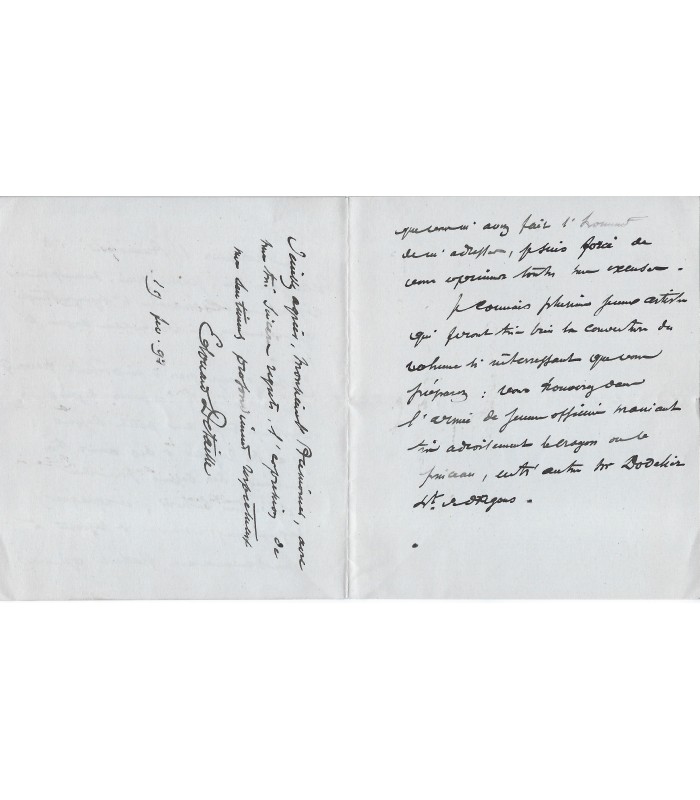 que vous m'avez fait l'honneur
de m'adresser, je suis forcé de
vous exprimer toutes mes excuses.
Je connais plusieurs jeunes artistes
qui feront très bien la couverture du
volume si intéressant que vous
préparez : vous trouverez dans
l'armée de jeunes officiers maniant
très adroitement le crayon ou le
pinceau, entr'autres Mr
Lt. de dragons.
Veuillez agréer, Monsieur, avec
mes très sincères regrets, l'expression de
mes sentiments profondément respectueux
Edouard Detaille
19 fev. 92